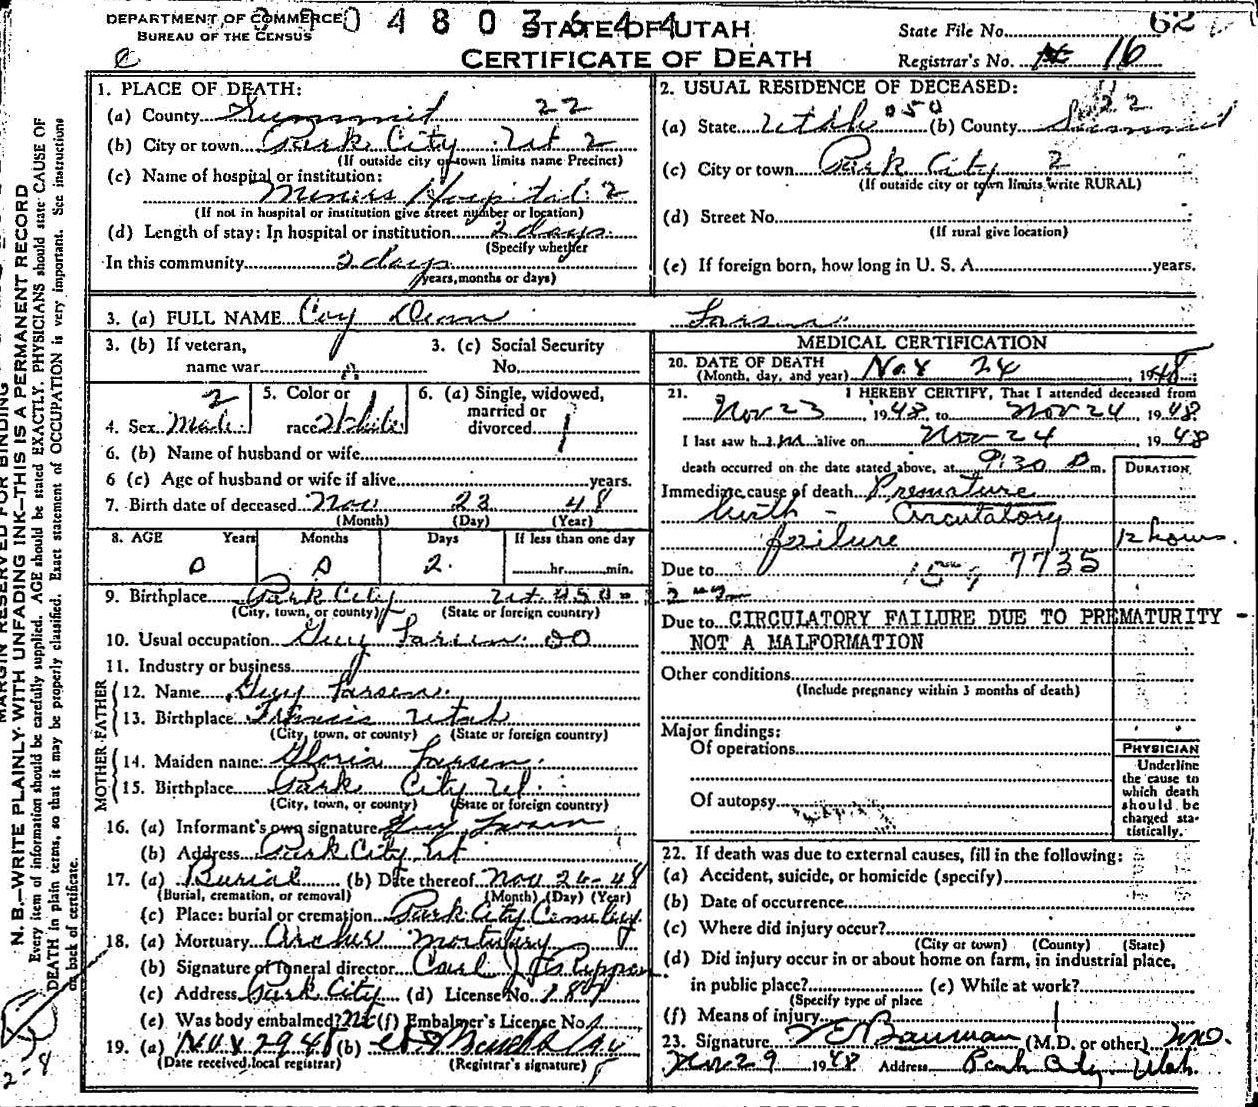 DEPARTMENT OF COMMERCE
BUREAU OF THE CENSUS
STATE OF UTAH
CERTIFICATE OF DEATH
State File No. 62
Registrar's No. 16
MARGIN RESERVED FOR BINDING
N. B.—WRITE PLAINLY WITH UNFADING INK—THIS IS A PERMANENT RECORD
Every item of information should be carefully supplied. AGE should be stated EXACTLY. PHYSICIANS should state CAUSE OF
DEATH in plain terms, so that it may be properly classified. Exact statement of OCCUPATION is very important. See instructions
on back of certificate.
1. PLACE OF DEATH:
(a) County Summit 22
(b) City or town Park City Ut 2
(If outside city or town limits name Precinct)
(c) Name of hospital or institution:
Miners Hospital 2
(If not in hospital or institution give street number or location)
(d) Length of stay: In hospital or institution 2 days
(Specify whether
In this community 2 days
years, months or days)
2. USUAL RESIDENCE OF DECEASED:
(a) State Utah 050 (b) County Summit 22
(c) City or town Park City 2
(If outside city or town limits write RURAL)
(d) Street No.
(If rural give location)
(e) If foreign born, how long in U. S. A. years.
3. (a) FULL NAME Coy Dean Larsen
3. (b) If veteran,
name war
3. (c) Social Security
No.
4. Sex Male 2
5. Color or
race White 1
6. (a) Single, widowed,
married or
divorced 1
6. (b) Name of husband or wife
6 (c) Age of husband or wife if alive years.
7. Birth date of deceased Nov 23 48
(Month) (Day) (Year)
8. AGE Years Months Days If less than one day
0 0 2 hr. min.
9. Birthplace Park City Ut.
(City, town, or county) (State or foreign country)
10. Usual occupation Guy Larsen 00
11. Industry or business
FATHER
12. Name Guy Larsen
13. Birthplace Utah
(City, town, or county) (State or foreign country)
MOTHER
14. Maiden name: Gloria Larsen
15. Birthplace Park City Ut.
(City, town, or county) (State or foreign country)
16. (a) Informant's own signature Guy Larsen
(b) Address Park City Ut
17. (a) Burial (b) Date thereof Nov 26-48
(Burial, cremation, or removal) (Month) (Day) (Year)
(c) Place: burial or cremation Park City Cemetery
18. (a) Mortuary Archer Mortuary
(b) Signature of funeral director Carl J
(c) Address Park City (d) License No. 187
(e) Was body embalmed? (f) Embalmer's License No.
19. (a) Nov 29 48 (b)
(Date received local registrar) (Registrar's signature)
MEDICAL CERTIFICATION
20. DATE OF DEATH
(Month, day, and year) Nov 24, 1948
21. I HEREBY CERTIFY, That I attended deceased from
Nov 23 1948, to Nov 24, 1948
I last saw him alive on Nov 24, 1948
death occurred on the date stated above, at 9:30 P m.
DURATION
Immediate cause of death Premature
birth - Circulatory
failure 12 hours.
Due to 7735
Due to CIRCULATORY FAILURE DUE TO PREMATURITY -
NOT A MALFORMATION
Other conditions
(Include pregnancy within 3 months of death)
Major findings:
Of operations
Of autopsy
PHYSICIAN
Underline
the cause to
which death
should be
charged sta-
tistically.
22. If death was due to external causes, fill in the following:
(a) Accident, suicide, or homicide (specify)
(b) Date of occurrence
(c) Where did injury occur?
(City or town) (County) (State)
(d) Did injury occur in or about home on farm, in industrial place,
in public place? (e) While at work?
(Specify type of place
(f) Means of injury
23. Signature Bauman (M.D. or other) M.D.
Nov 29 1948 Address Park City, Utah.